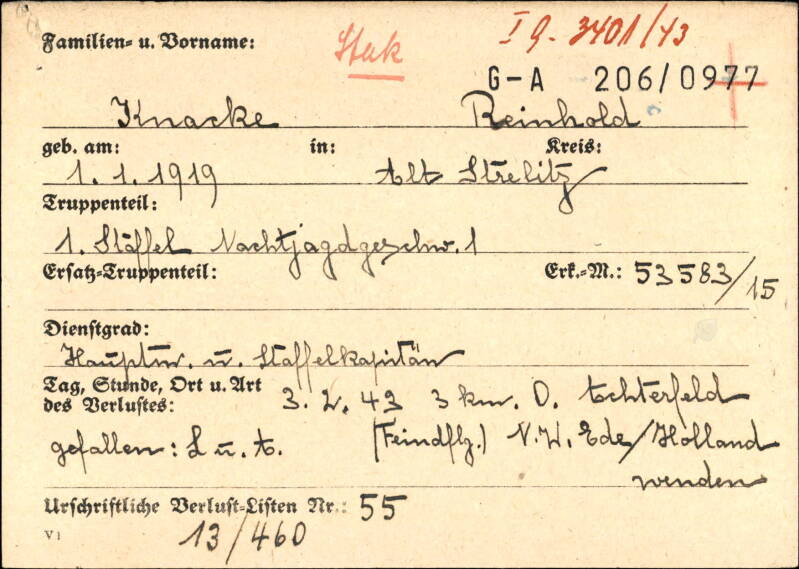 Familien= u. Vorname: Stak I g. 3401/43
G-A 206/0977
Knacke Reinhold
geb. am: in: Kreis:
1. 1. 1919 Alt Strelitz
Truppenteil:
1. Staffel Nachtjagdgeschw. 1
Ersatz=Truppenteil: Erk.=M.: 53583/15
Dienstgrad:
Hauptm. u. Staffelkapitän
Tag, Stunde, Ort u. Art
des Verlustes: 3. 2. 43 3 km. O. Achterfeld
gefallen: L u. A. (Feindflg.) N.W. Ede/Holland
wenden
Urschriftliche Verlust=Listen Nr.: 55
V1 13/460